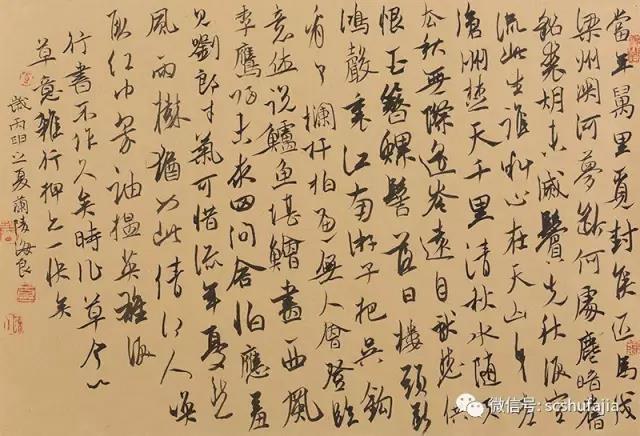 當年萬里覓封侯匹馬戍
梁州關河夢斷何處塵暗舊
貂裘胡未滅鬢先秋淚空
流此生誰料心在天山身老
滄洲楚天千里清秋水隨天
去秋無際遥岑遠目獻愁供
恨玉簪螺髻落日樓頭斷
鴻聲裏江南游子把吳鈎
看了欄杆拍遍無人會登臨
意休說鱸魚堪鱠盡西風
季鷹歸未求田問舍怕應羞
見劉郎才氣可惜流年憂愁
風雨樹猶如此倩何人喚
取紅巾翠袖揾英雄淚
行書不作久矣時作草今以
草意雜行押之一快矣
歲丙申之夏蘭陵海良
微信号: scshufajia